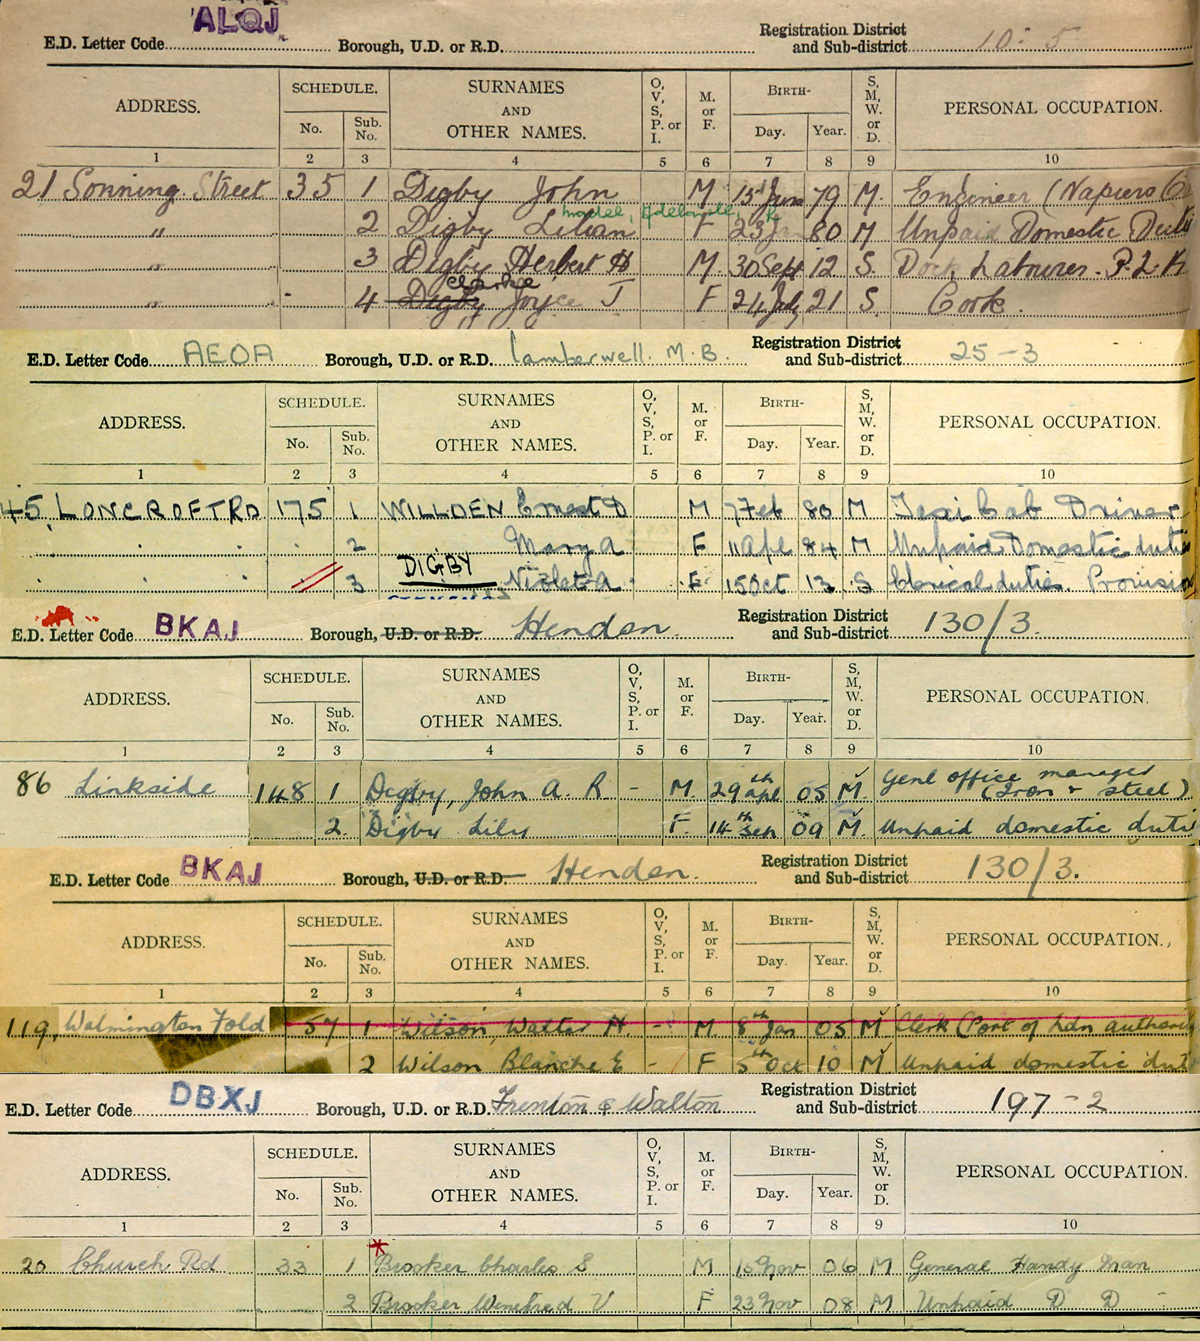 E.D. Letter Code ALQJ Borough, U.D. or R.D. Registration District and Sub-district 10: 5
ADDRESS. SCHEDULE. No. Sub. No. SURNAMES AND OTHER NAMES. O, V, S, P. or I. M. or F. BIRTH- Day. Year. S, M, W. or D. PERSONAL OCCUPATION.
1 2 3 4 5 6 7 8 9 10
21 Sonning Street 35 1 Digby John M 79 M. Engineer (Napiers
" 2 Digby Lilian F 23 80 M Unpaid Domestic Duti
" 3 Digby Herbert H M. 30 Sept 12 S. Dock Labourer. P.L.A
Clarke
" 4 Digby Joyce J F 24 July 21 S. Cook.
E.D. Letter Code AEOA Borough, U.D. or R.D. Camberwell. M.B. Registration District and Sub-district 25 - 3
ADDRESS. SCHEDULE. No. Sub. No. SURNAMES AND OTHER NAMES. O, V, S, P. or I. M. or F. BIRTH- Day. Year. S, M, W. or D. PERSONAL OCCUPATION.
1 2 3 4 5 6 7 8 9 10
45, LONCROFT RD 175 1 WILLDEN Ernest D M 7 Feb 80 M Taxi Cab Driver
2 Mary A F 11 Apl 84 M Unpaid Domestic duti
DIGBY
3 Violet A F 15 Oct 13 S Clerical duties. Provisio
E.D. Letter Code BKAJ Borough, U.D. or R.D. Hendon. Registration District and Sub-district 130/3.
ADDRESS. SCHEDULE. No. Sub. No. SURNAMES AND OTHER NAMES. O, V, S, P. or I. M. or F. BIRTH- Day. Year. S, M, W. or D. PERSONAL OCCUPATION.
1 2 3 4 5 6 7 8 9 10
86 Linkside 148 1 Digby, John A. R - M. 29th Apl 05 M Genl office manager (Iron & steel)
2. Digby Lily F. 14th Sep 09 M. Unpaid domestic duti
E.D. Letter Code BKAJ Borough, U.D. or R.D. Hendon. Registration District and Sub-district 130/3.
ADDRESS. SCHEDULE. No. Sub. No. SURNAMES AND OTHER NAMES. O, V, S, P. or I. M. or F. BIRTH- Day. Year. S, M, W. or D. PERSONAL OCCUPATION.
1 2 3 4 5 6 7 8 9 10
119, Walmington Fold 57 1 Wilson, Walter H. - M. 8th Jan 05 M Clerk (Port of Ldn authori
2 Wilson Blanche E - F 5th Oct 10 M Unpaid domestic dut
E.D. Letter Code DBXJ Borough, U.D. or R.D. Frinton & Walton Registration District and Sub-district 197 - 2
ADDRESS. SCHEDULE. No. Sub. No. SURNAMES AND OTHER NAMES. O, V, S, P. or I. M. or F. BIRTH- Day. Year. S, M, W. or D. PERSONAL OCCUPATION.
1 2 3 4 5 6 7 8 9 10
20 Church Rd 33 1 Brooker Charles S M Nov 06 M General Handy Man
2 Brooker Winifred V F 23 Nov 08 M Unpaid D D